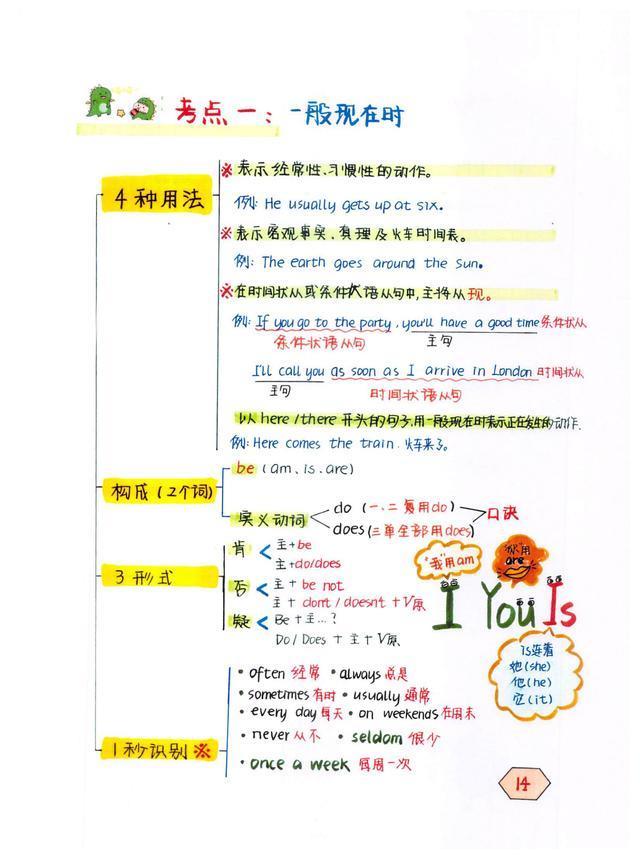 考点一：一般现在时
4种用法
※表示经常性、习惯性的动作。
例: He usually gets up at six.
※表示客观事实、真理及火车时间表。
例: The earth goes around the sun.
※在时间状从或条件状语从句中,主将从现。
例: If you go to the party, you'll have a good time 条件状从
条件状语从句 主句
I'll call you as soon as I arrive in London 时间状从
主句 时间状语从句
以here/there开头的句子,用一般现在时表示正在发生的动作.
例: Here comes the train. 火车来了。
构成(2个词)
be (am、is、are)
实义动词
do (一、二复用do)
does (三单全部用does)
口诀
3形式
肯 < 主+be
主+do/does
否 < 主+be not
主+don't/doesn't+V原
疑 < Be+主…?
Do/Does+主+V原
"我"用am
"你"用
are
I You Is
is连着
她(she)
他(he)
它(it)
1秒识别※
• often 经常 • always 总是
• sometimes 有时 • usually 通常
• every day 每天 • on weekends 在周末
• never 从不 • seldom 很少
• once a week 每周一次
14